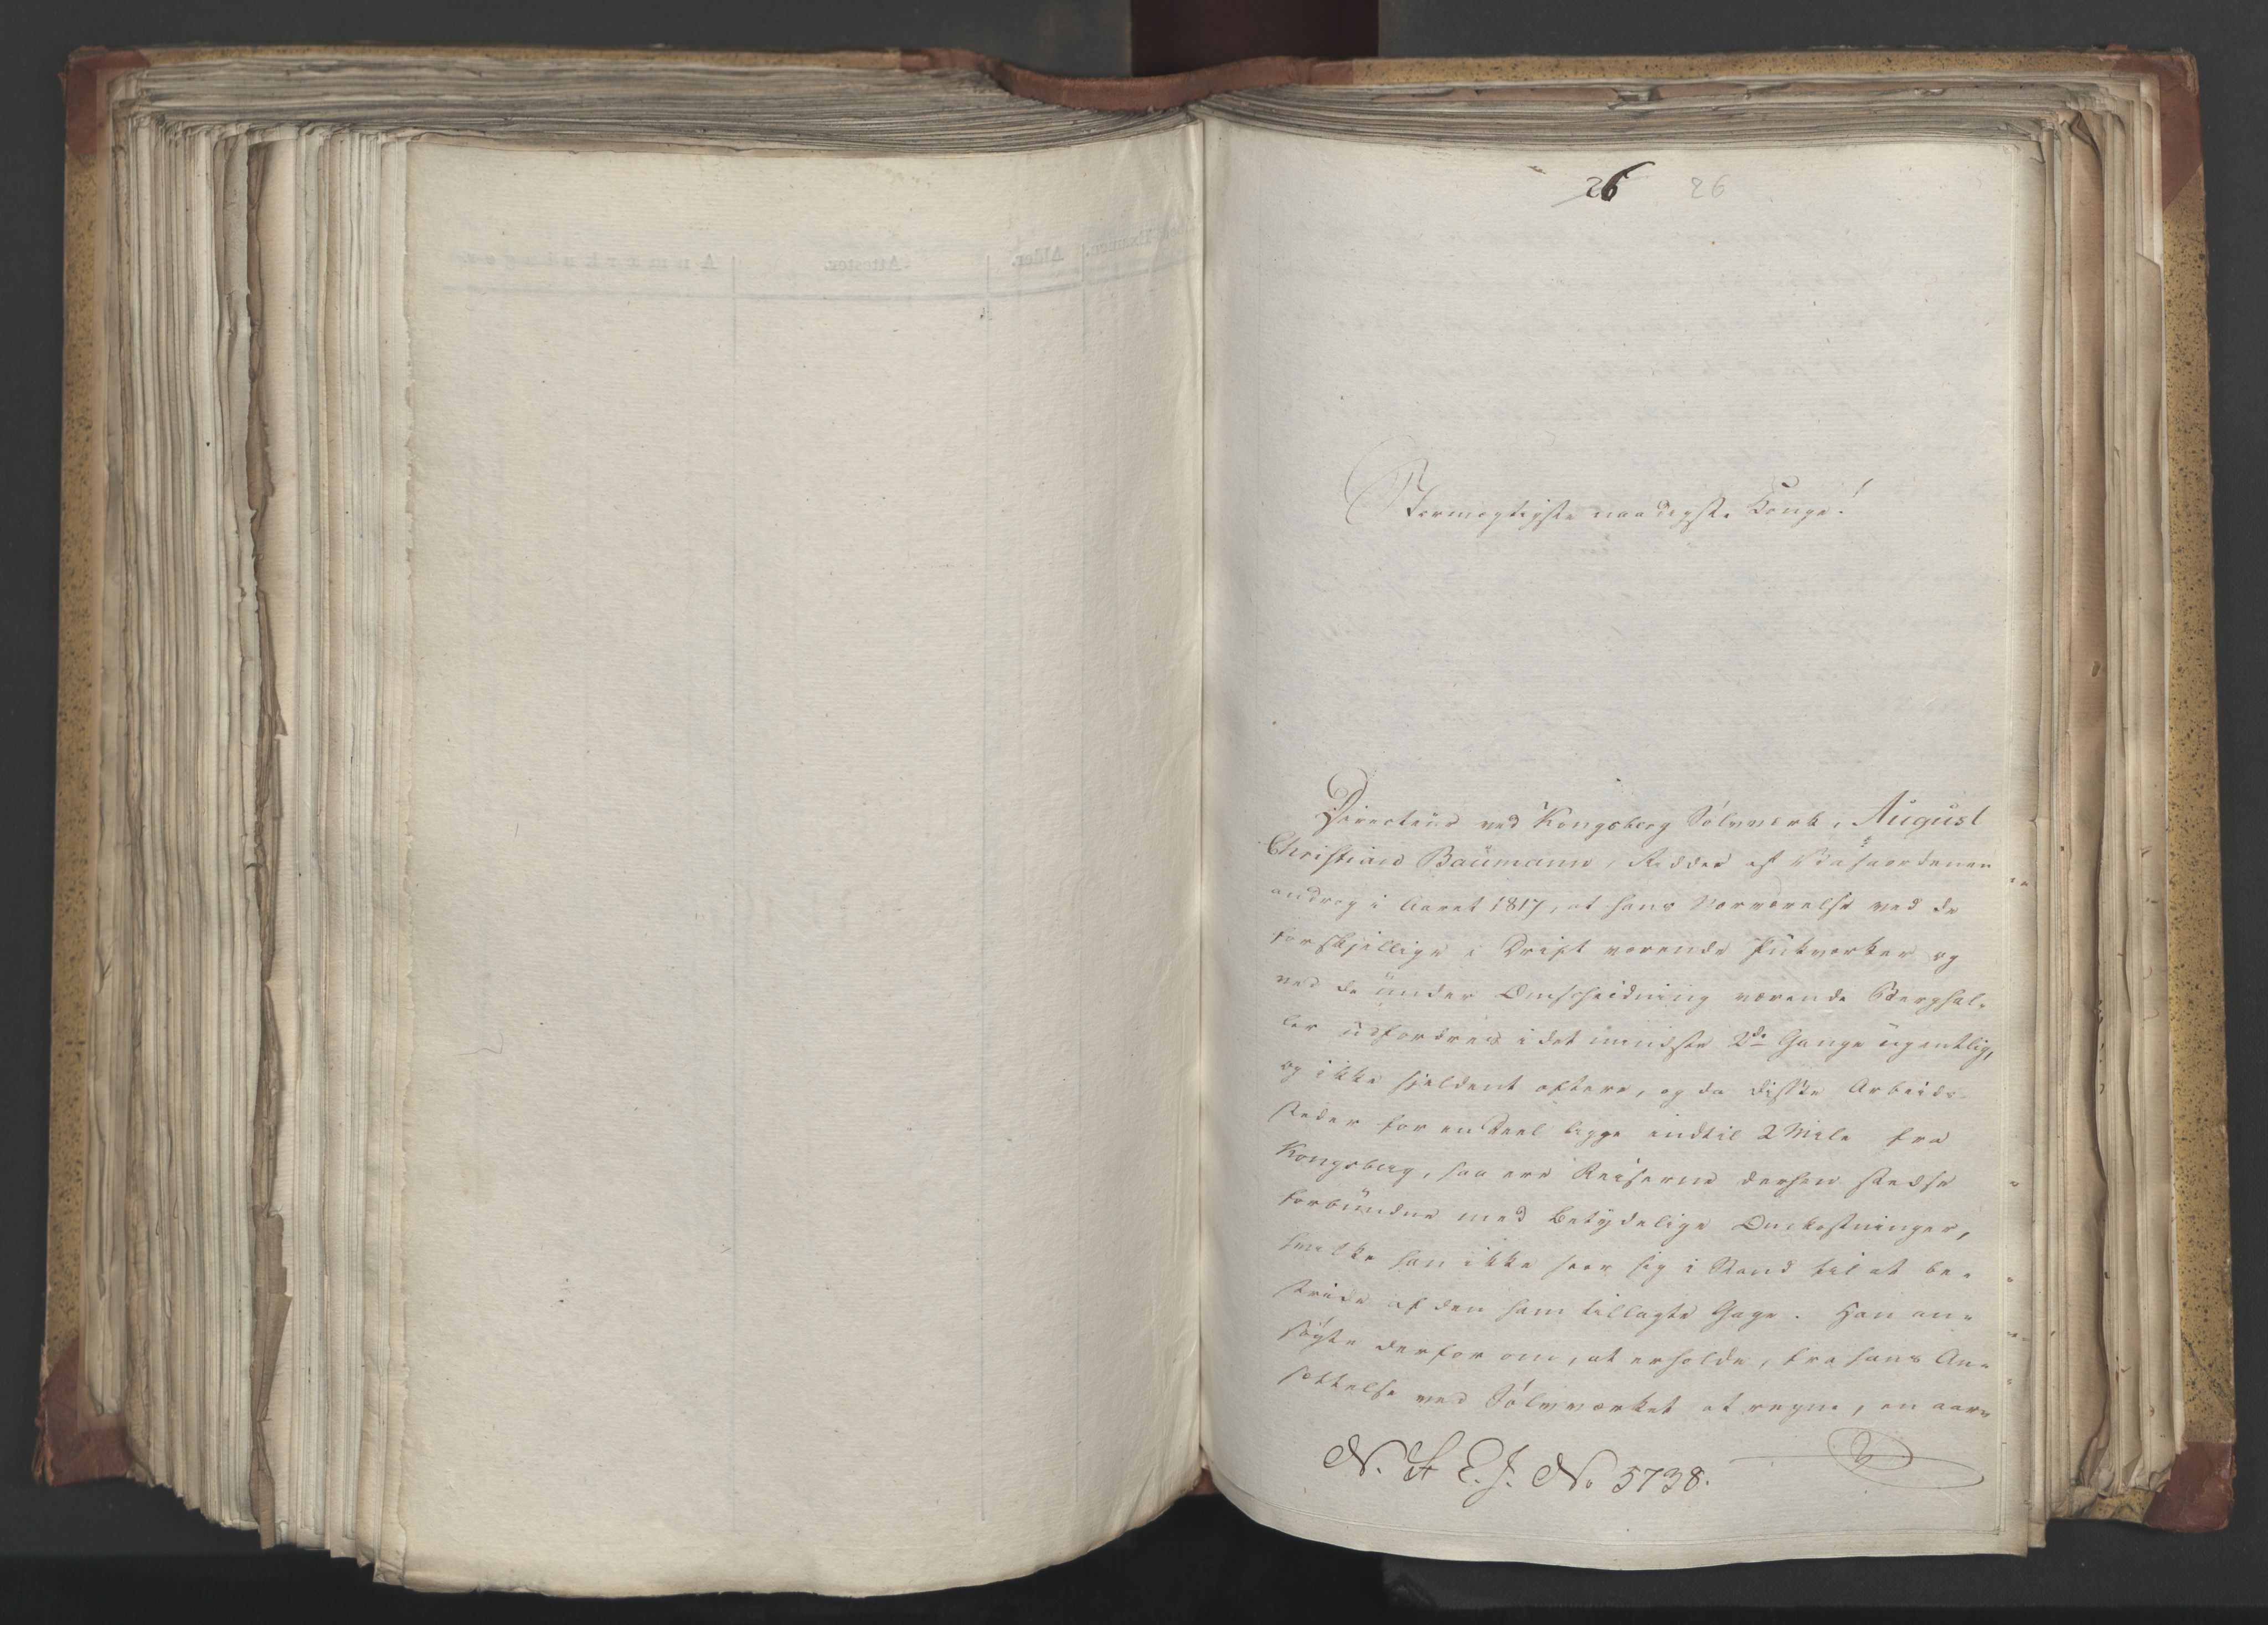 26 26
Stormægtigste naadigste Konge!
Directeur ved Kongsberg Sølvværk, August
Christian Baumann, Ridder af Wasaordenen
androg i Aaret 1817, at hans Nærværelse ved de
forskjellige i Drift værende Pukværker og
ved de under Omscheidning værende Berghal-
ler udfordres i det mindste 2de Gange ugentlig,
og ikke sjeldent oftere, og da disse Arbeids-
steder for en Deel ligge indtil 2 Mile fra
Kongsberg, saa ere Reiserne derhen stedse
forbundne med betydelige Omkostninger,
hvilke han ikke saae sig i Stand til at be-
stride af den ham tillagte Gage. Han an-
søgte derfor om, at erholde, fra hans An-
sættelse ved Sølvværket at regne, en aar-
N. St E. J. No 5738.